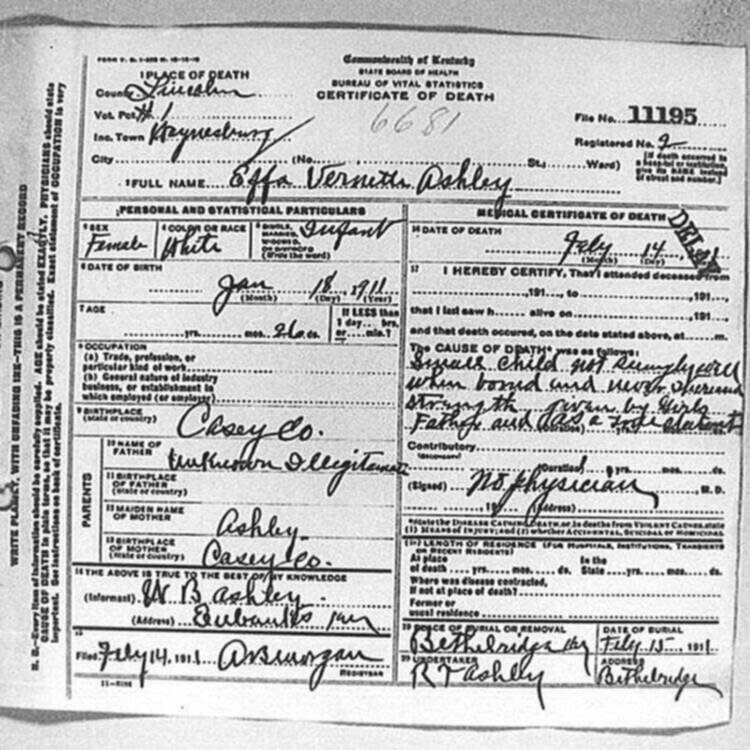 FORM V. S. 1
Commonwealth of Kentucky
STATE BOARD OF HEALTH
BUREAU OF VITAL STATISTICS
CERTIFICATE OF DEATH
1 PLACE OF DEATH
County Lincoln
Vot. Pct. #1
Inc. Town Waynesburg
City (No. St.; Ward)
6681
File No. 11195
Registered No. 2
[If death occurred in a hospital or institution, give its NAME instead of street and number.]
2 FULL NAME Effa Vernetta Ashley
PERSONAL AND STATISTICAL PARTICULARS
3 SEX Female
4 COLOR OR RACE White
5 SINGLE, MARRIED, WIDOWED, OR DIVORCED (Write the word) Infant
6 DATE OF BIRTH Jan 18 1911
(Month) (Day) (Year)
7 AGE yrs. mos. 26 ds.
If LESS than 1 day hrs. or min.?
8 OCCUPATION
(a) Trade, profession, or particular kind of work
(b) General nature of industry business, or establishment in which employed (or employer)
9 BIRTHPLACE (State or country) Casey Co.
PARENTS
10 NAME OF FATHER Unknown Illigitamate
11 BIRTHPLACE OF FATHER (State or country)
12 MAIDEN NAME OF MOTHER Ashley
13 BIRTHPLACE OF MOTHER (State or country) Casey Co.
14 THE ABOVE IS TRUE TO THE BEST OF MY KNOWLEDGE
(Informant) W B Ashley
(Address) Eubanks Ky
15
Filed Feby 14, 1911
REGISTRAR
MEDICAL CERTIFICATE OF DEATH
16 DATE OF DEATH Feby 14
(Month) (Day)
DELAY
17 I HEREBY CERTIFY, That I attended deceased from
, 191 , to , 191 ,
that I last saw h alive on , 191 ,
and that death occured, on the date stated above, at m.
The CAUSE OF DEATH* was as follows:
Small child not
when bornd and never
strength given by Girls
Father and a true statement
Contributory
(Duration) yrs. mos. ds.
(Signed) No physician, M. D.
191 (Address)
*State the DISEASE CAUSING DEATH, or in deaths from VIOLENT CAUSES, state (1) MEANS OF INJURY; and (2) whether ACCIDENTAL, SUICIDAL or HOMICIDAL
18 LENGTH OF RESIDENCE (FOR HOSPITALS, INSTITUTIONS, TRANSIENTS OR RECENT RESIDENTS)
At place of death yrs. mos. ds. In the State yrs. mos. ds.
Where was disease contracted, If not at place of death?
Former or usual residence
19 PLACE OF BURIAL OR REMOVAL Bethelridge Ky
DATE OF BURIAL Feby 15 1911
20 UNDERTAKER R T Ashley
ADDRESS Bethelridge
WRITE PLAINLY, WITH UNFADING INK—THIS IS A PERMANENT RECORD
N. B.—Every item of information should be carefully supplied. AGE should be stated EXACTLY. PHYSICIANS should state
CAUSE OF DEATH in plain terms, so that it may be properly classified. Exact statement of OCCUPATION is very
important. See instructions on back of certificate.